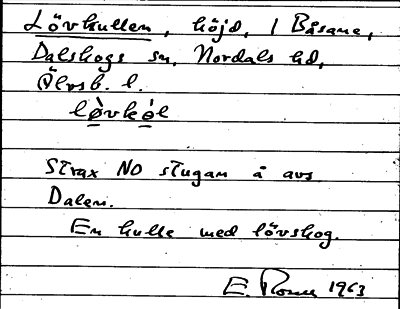 Lövkullen, höjd, / Båsane,
Dalskogs sn, Nordals hd,
Älvsb. l.
lø̀vkøl
Strax NO stugan å avs
Dalen.
En kulle med lövskog.
E. 1963